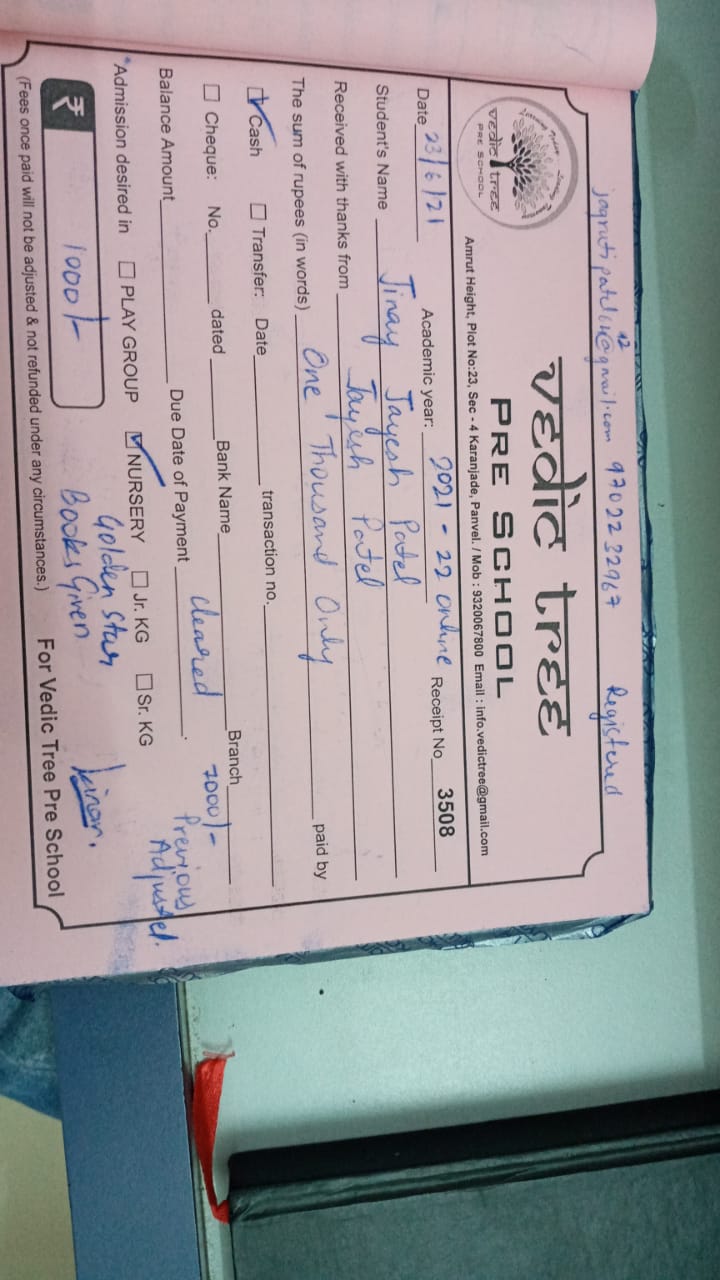 jagrutipatel 9702232967 Registered
12
@gmail.com
vedic tree
PRE SCHOOL
vedic tree
PRE SCHOOL
Amrut Height, Plot No:23, Sec - 4 Karanjade, Panvel. / Mob : 9320067800 Email : info.vedictree@gmail.com
Date 23/6/21 Academic year: 2021 - 22 online Receipt No 3508
Student's Name Jinay Jayesh Patel
Received with thanks from Jayesh Patel
The sum of rupees (in words) One Thousand Only paid by
Cash Transfer: Date transaction no.
Cheque: No. dated Bank Name Branch
Balance Amount Due Date of Payment cleared 7000/-
Previous
Adjusted.
*Admission desired in PLAY GROUP NURSERY Jr. KG Sr. KG
Golden Star
₹ 1000/- Books Given
(Fees once paid will not be adjusted & not refunded under any circumstances.) For Vedic Tree Pre School